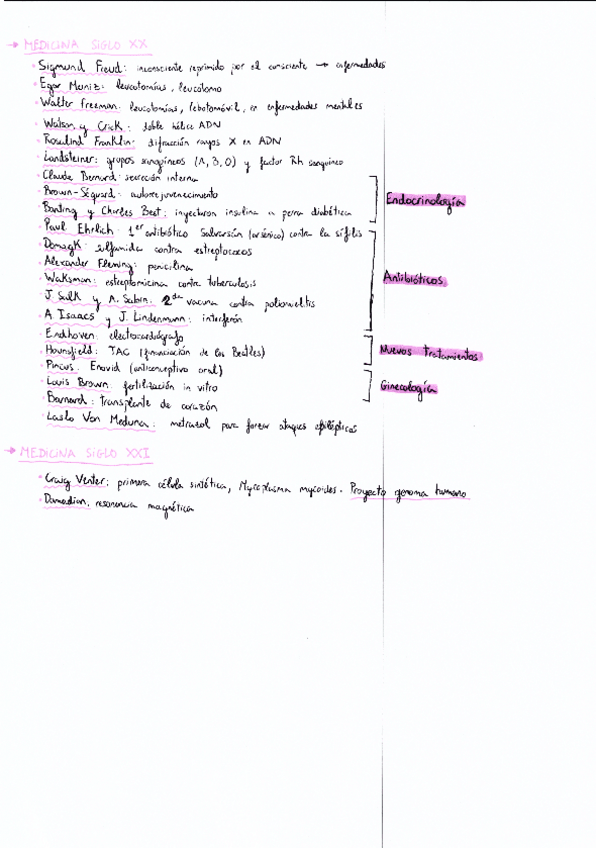 → MEDICINA SIGLO XX
· Sigmund Freud: inconsciente reprimido por el consciente → enfermedades
· Egar Muniz: leucotomías, leucotomo
· Walter Freeman: leucotomías, lobotomóvil, en enfermedades mentales
· Watson y Crick: doble hélice ADN
· Rosalind Franklin: difracción rayos X en ADN
· Landsteiner: grupos sanguíneos (A, B, O) y factor Rh sanguíneo
· Claude Bernard: secreción interna
· Brown-Séquard: autorejuvenecimiento
· Banting y Charles Best: inyectaron insulina a perra diabética
Endocrinología
· Paul Ehrlich: 1er antibiótico Salvarsán (arsénico) contra la sífilis
· Domagk: sulfamida contra estreptococos
· Alexander Fleming: penicilina
· Waksman: estreptomicina contra tuberculosis
· J Salk y A. Sabin: 2da vacuna contra poliomelitis
· A Isaacs y J. Lindenmann: interferón
Antibióticos
· Eindhoven: electrocardiógrafo
· Hounsfield: TAC (financiación de los Beatles)
Nuevos tratamientos
· Pincus: Enovid (anticonceptivo oral)
· Louis Brown: fertilización in vitro
Ginecología
· Barnard: transplante de corazón
· Laslo Von Meduna: metrazol para forzar ataques epilépticos
→ MEDICINA SIGLO XXI
· Craig Venter: primera célula sintética, Mycoplasma mycoides. Proyecto genoma humano
· Damadian, resonancia magnética